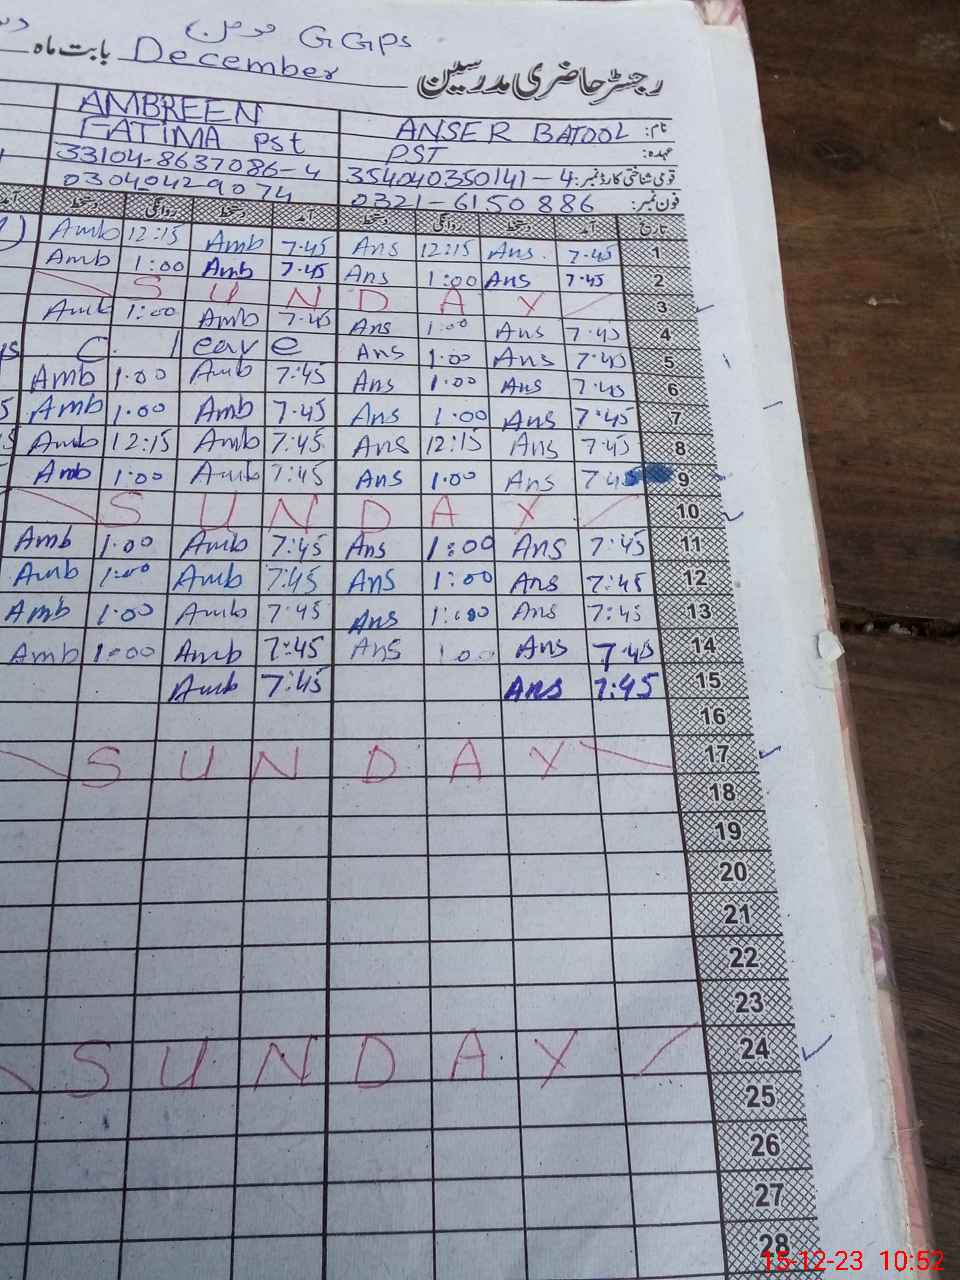 GGPS
رجسٹر حاضری مدرسین بابت ماہ December
نام: ANSER BATOOL AMBREEN
عہدہ: PST FATIMA PST
قومی شناختی کارڈ نمبر: 354040350141-4 33104-8637086-4
فون نمبر: 0321-6150886 03040429074
تاریخ آمد دستخط روانگی دستخط آمد دستخط روانگی دستخط آمد
1 7.45 Ans. 12:15 Ans 7.45 Amb 12:15 Amb
2 7.45 Ans 1:00 Ans 7.45 Amb 1:00 Amb
3 S U N D A Y
4 7.45 Ans 1:00 Ans 7.45 Amb 1:00 Amb
5 7:45 Ans 1.00 Ans C. leave
6 7.45 Ans 1.00 Ans 7:45 Amb 1.00 Amb
7 7.45 Ans 1:00 Ans 7.45 Amb 1.00 Amb
8 7:45 Ans 12:15 Ans 7:45 Amb 12:15 Amb
9 7.45 Ans 1.00 Ans 7:45 Amb 1:00 Amb
10 S U N D A Y
11 7:45 Ans 1:00 Ans 7:45 Amb 1.00 Amb
12 7:45 Ans 1:00 Ans 7:45 Amb 1:00 Amb
13 7:45 Ans 1:00 Ans 7:45 Amb 1.00 Amb
14 7.45 Ans 1.00 Ans 7:45 Amb 1:00 Amb
15 7:45 Ans 7:45 Amb
16
17 S U N D A Y
18
19
20
21
22
23
24 S U N D A Y
25
26
27
28
15-12-23 10:52